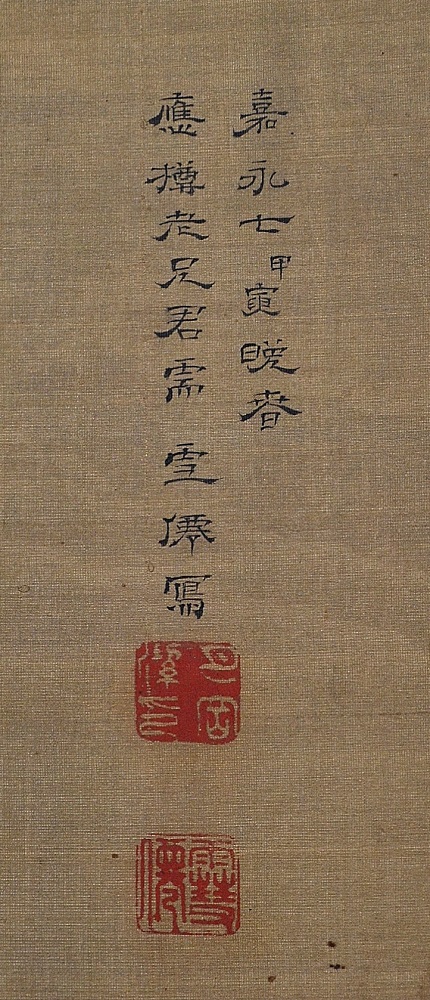 嘉永七甲寅晩春
應樽老兄君需 雪僊寫